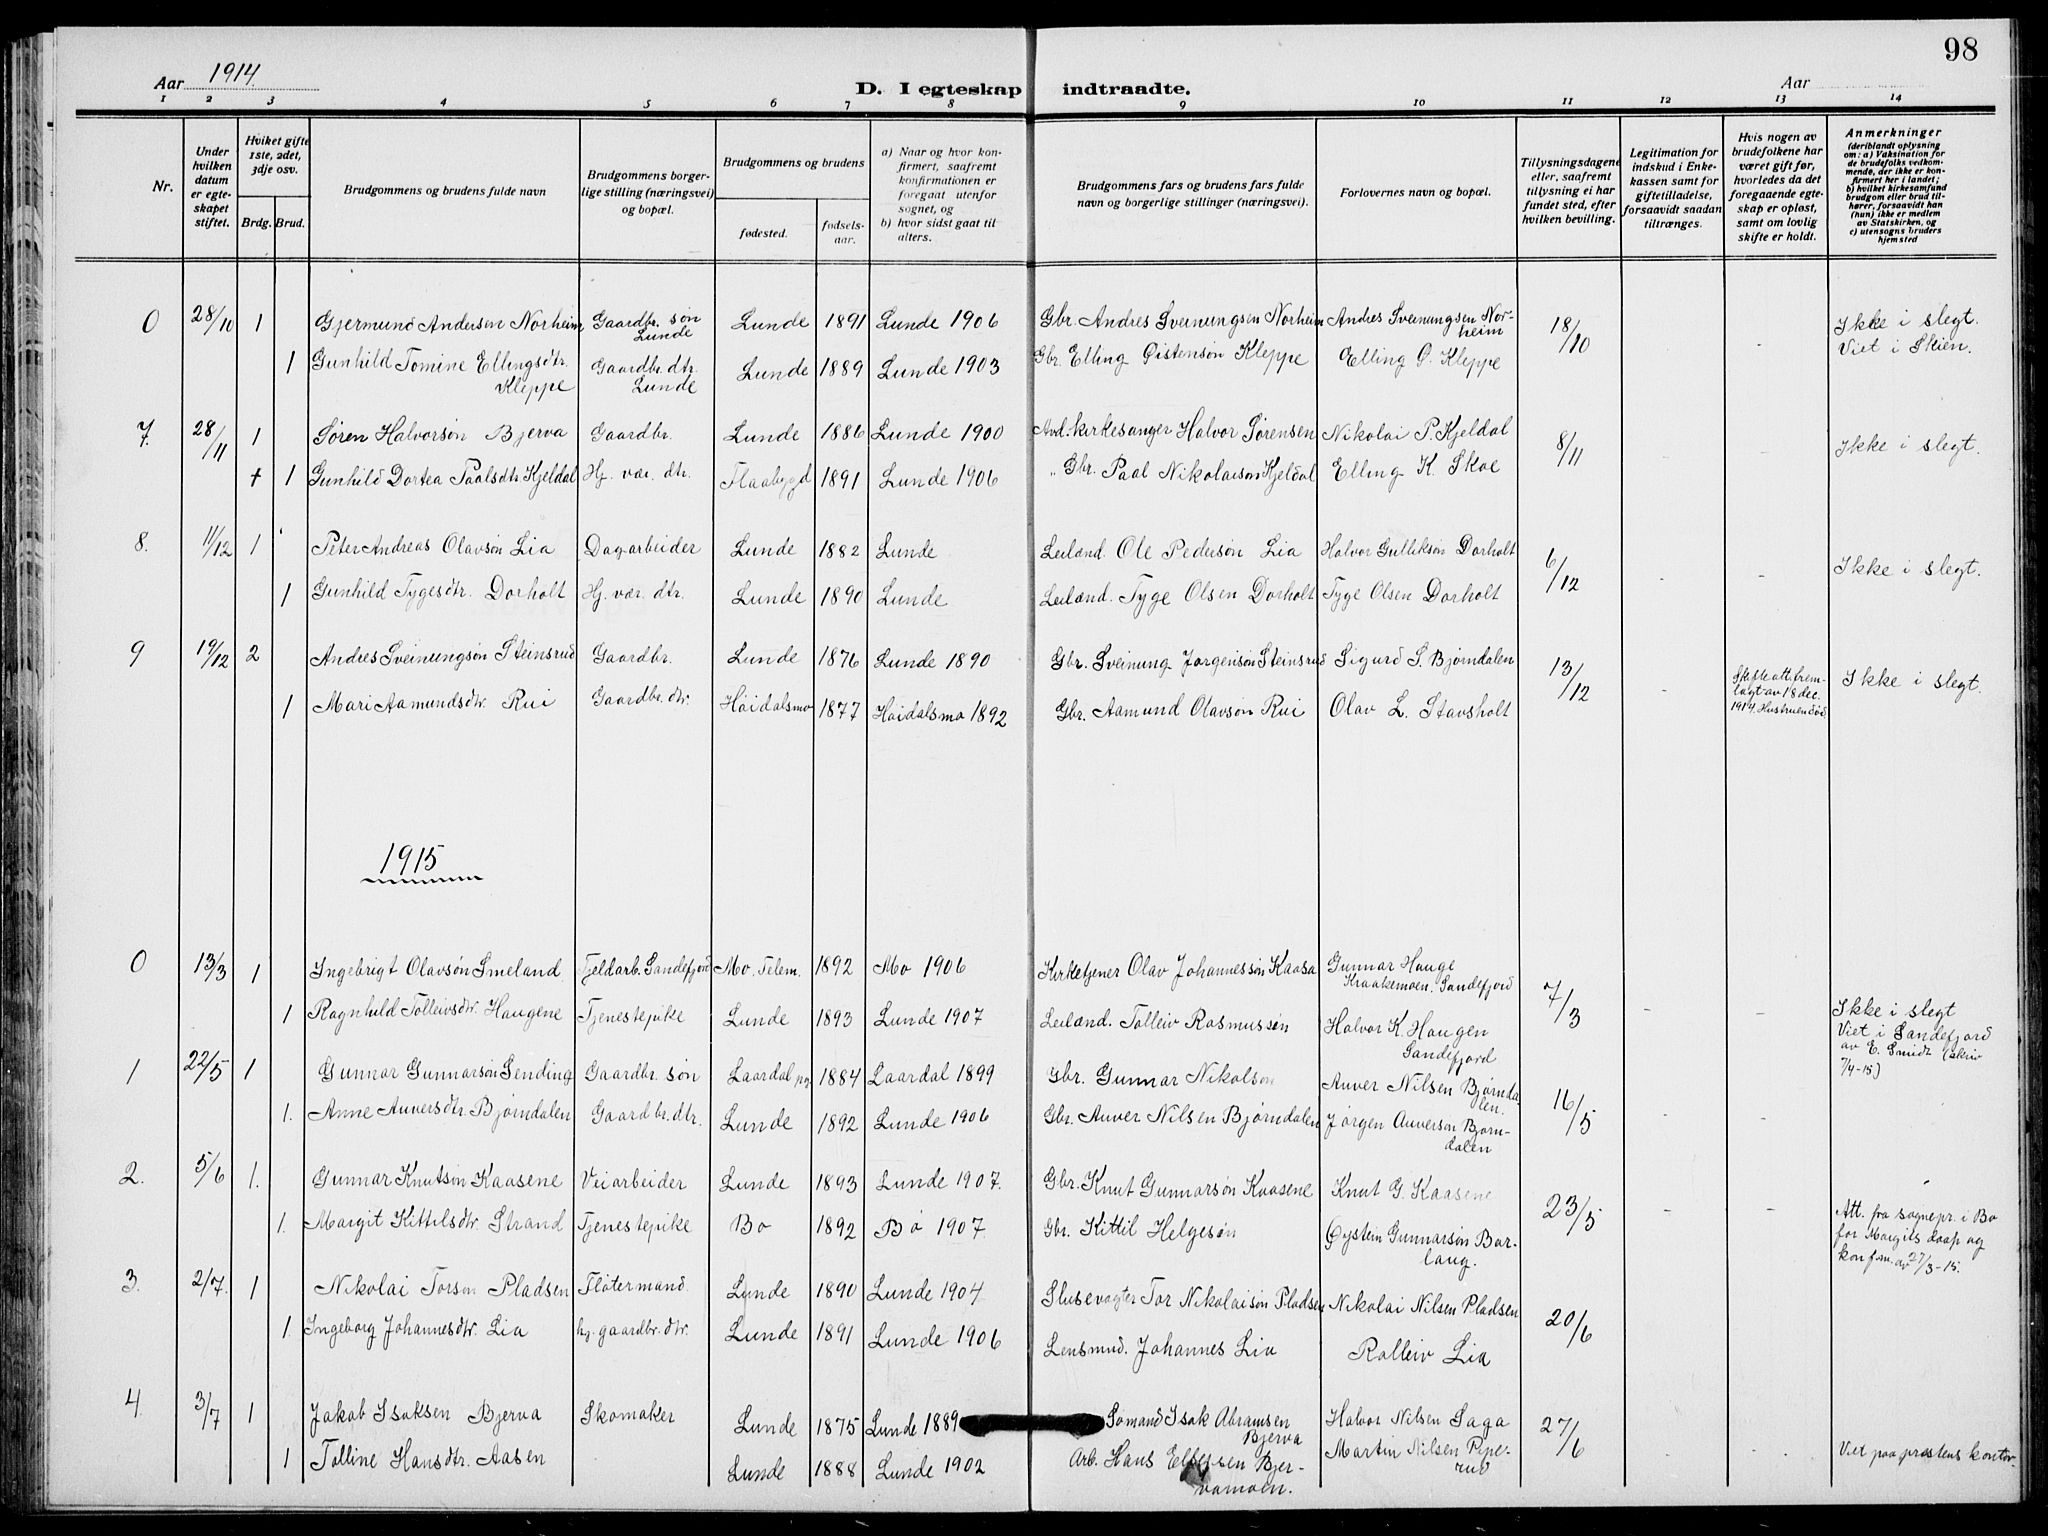 98
Aar 1914.
D. I egteskap indtraadte.
Aar
1 2 3 4 5 6 7 8 9 10 11 12 13 14
Nr.
Under hvilken datum er egteskapet stiftet.
Hviket gifte 1ste, 2det, 3dje osv.
Brdg. Brud.
Brudgommens og brudens fulde navn
Brudgommens borgerlige stilling (næringsvei) og bopæl.
Brudgommens og brudens
fødested.
fødselsaar.
a) Naar og hvor konfirmert, saafremt konfirmationen er foregaat utenfor sognet, og
b) hvor sidst gaat til alters.
Brudgommens fars og brudens fars fulde navn og borgerlige stillinger (næringsvei).
Forlovernes navn og bopæl.
Tillysningsdagene eller, saafremt tillysning ei har fundet sted, efter hvilken bevilling.
Legitimation for indskud i Enkekassen samt for giftetilladelse, forsaavidt saadan tiltrænges.
Hvis nogen av brudefolkene har været gift før, hvorledes da det foregaaende egteskap er opløst, samt om lovlig skifte er holdt.
Anmerkninger (deriblandt oplysning om: a) Vaksination for de brudefolks vedkommende, der ikke er konfirmert her i landet; b) hvilket kirkesamfund brudgom eller brud tilhører, forsaavidt han (hun) ikke er medlem av Statskirken, og c) utensogns bruders hjemsted
0 28/10 1 Gjermund Andersen Norheim Gaardbr. søn Lunde Lunde 1891 Lunde 1906 Gbr. Andres Sveinungsen Norheim Andres Sveinungsen Norheim 18/10 Ikke i slegt. Viet i Skien.
1 Gunhild Tomine Ellingsdtr. Kleppe Gaardbr. dtr. Lunde Lunde 1889 Lunde 1903 Gbr. Elling Øistensøn Kleppe Elling Ø. Kleppe
7. 28/11 1 Søren Halvorsøn Bjerva Gaardbr. Lunde 1886 Lunde 1900 Avd. kirkesanger Halvor Sørensen Nikolai P. Kjeldal 8/11 - - Ikke i slegt.
+ 1 Gunhild Dortea Paalsdtr Kjeldal Hj. vær. dtr. Flaabygd 1891 Lunde 1906 Gbr. Paal Nikolaisøn Kjeldal Elling K. Skoe
8. 11/12 1 Peter Andreas Olavsøn Lia Dagarbeider Lunde 1882 Lunde Leilænd Ole Pedersøn Lia Halvor Gulliksøn Dorholt 6/12 - - Ikke i slegt.
1 Gunhild Tygesdtr. Dorholt Hj. vær. dtr. Lunde 1890 Lunde Leilænd. Tyge Olsen Dorholt Tyge Olsen Dorholt
9 19/12 2 Andres Sveinungsøn Steinsrud Gaardbr. Lunde 1876 Lunde 1890 Gbr. Sveinung Jørgensøn Steinsrud Sigurd S. Bjørndalen 13/12 - Skifteatt. fremlagt av 18 dec. 1914. Hustruen død. Ikke i slegt.
1 Mari Aamundsdtr. Rui Gaardbr. dtr. Høidalsmo 1877 Høidalsmo 1892 Gbr. Aamund Olavsøn Rui Olav L. Stavsholt
1915
0 13/3 1 Ingebrigt Olavsøn Smeland Fjeldarb. Sandefjord Mo, Telem. 1892 Mo 1906 Kirketjener Olav Johannessøn Kaasa Gunnar Hauge Kraakemoen. Sandefjord 7/3 - - Ikke i slegt Viet i Sandefjord av E. Smidt (skriv 7/4-15)
1 Ragnhild Tolleivsdtr. Haugene Tjenestepike Lunde 1893 Lunde 1907 Leilænd. Tolleiv Rasmussøn Halvor K. Haugen Sandefjord
1 22/5 1 Gunnar Gunnarsøn Sending Gaardbr. søn Laardal pg. 1884 Laardal 1899 Gbr. Gunnar Nikolsøn Auver Nilsen Bjørndalen. 16/5 - -
1. Anne Auversdtr. Bjørndalen Gaardbr. dtr. Lunde 1892 Lunde 1906 Gbr. Auver Nilsen Bjørndalen Jørgen Auversøn Bjørndalen
2. 5/6 1. Gunnar Knutsøn Kaasene Veiarbeider Lunde 1893 Lunde 1907. Gbr. Knut Gunnarsøn Kaasene Knut G. Kaasene 23/5 - - Att. fra sognepr. i Bø for Margits daap og konfm. av 27/3-15.
1. Margit Kittilsdtr. Strand Tjenestepike Bø 1892 Bø 1907 Gbr. Kittil Helgesøn Øystein Gunnarsøn Barlaug.
3. 2/7. 1 Nikolai Torsen Pladsen Fløtermand Lunde 1890 Lunde 1904 Slusevogter Tor Nikolaisøn Pladsen Nikolai Nilsen Pladsen 20/6
1. Ingeborg Johannesdtr. Lia hj. gaardbr. dtr. Lunde 1891 Lunde 1906 Lensmnd. Johannes Lia Rolleiv Lia
4. 3/7 1 Jakob Isaksen Bjerva Skomaker Lunde 1875 Lunde 1889 Sømand Isak Abramsen Bjerva Halvor Nilsen Saga 27/6 Viet paa prostens kontor.
1 Tolline Hansdtr. Aasen Lunde 1888 Lunde 1902 Arb. Hans Ellefsen Bjervamoen. Martin Nilsen Piperud